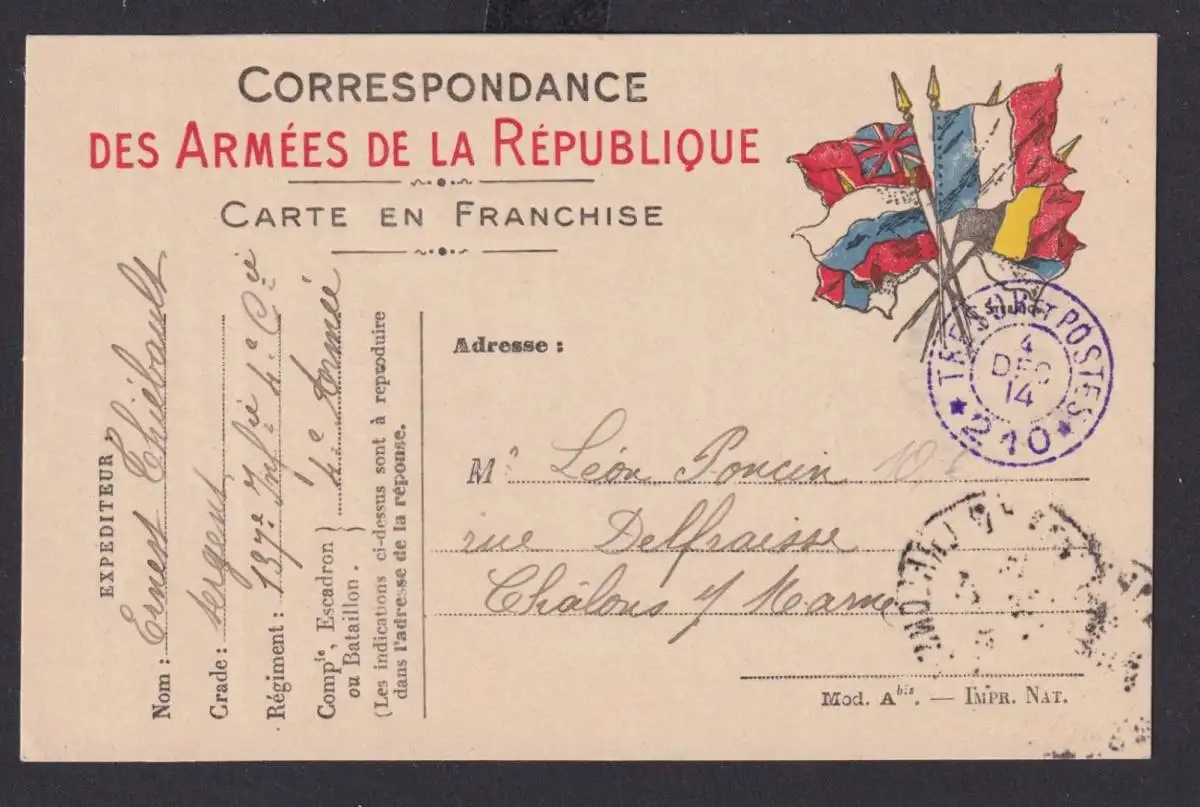 CORRESPONDANCE
DES ARMÉES DE LA RÉPUBLIQUE
CARTE EN FRANCHISE
EXPÉDITEUR
Nom : Ernest Thiébault
Grade : sergent
Régiment : 137e Infie 4e Cie
Compie, Escadron } 4e Armée
ou Bataillon.
(Les indications ci-dessus sont à reproduire
dans l'adresse de la réponse.
Adresse :
Mr Léon Poncin
rue Delfraisse
Châlons s/ Marne
TRESOR ET POSTES
4
DEC
14
* 210 *
Mod. Abis. — IMPR. NAT.